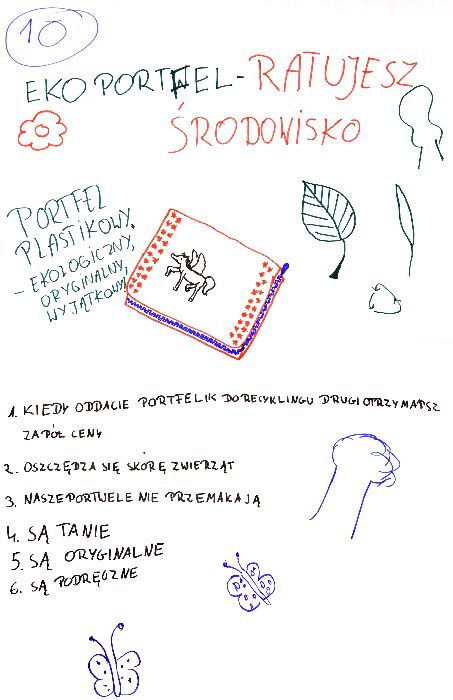 10
EKO PORTFEL - RATUJESZ
ŚRODOWISKO
PORTFEL
PLASTIKOWY,
- EKOLOGICZNY,
ORYGINALNY,
WYJĄTKOWY
1. KIEDY ODDACIE PORTFELIK DO RECYKLINGU DRUGI OTRZYMASZ
ZA PÓŁ CENY
2. OSZCZĘDZA SIĘ SKÓRĘ ZWIERZĄT
3. NASZE PORTUELE NIE PRZEMAKAJĄ
4. SĄ TANIE
5. SĄ ORYGINALNE
6. SĄ PODRĘCZNE